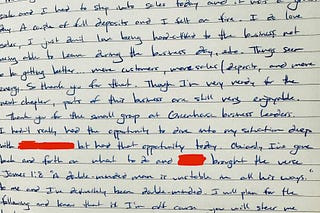 sale and I had to step into sales today and it was a great
day. A couple of full deposits and I felt on fire. I do love
sales, I just don't love being handcuffed to the business not
being able to learn during the business day, etc. Things seem
to be getting better... more customers, more sales/deposits, and more
energy. So thank you for that. Though I'm very ready for the
next chapter, parts of this business are still very enjoyable.
Thank you for the small group at Greenhouse business leaders.
I hadn't really had the opportunity to dive into my situation deep
with but had that opportunity today. Obviously, I've gone
back and forth on what to do and brought the verse
James 1:8 "a double-minded man is unstable in all his ways."
to me and I've definitely been double-minded. I will plan for the
following and know that if I'm off course you will steer me